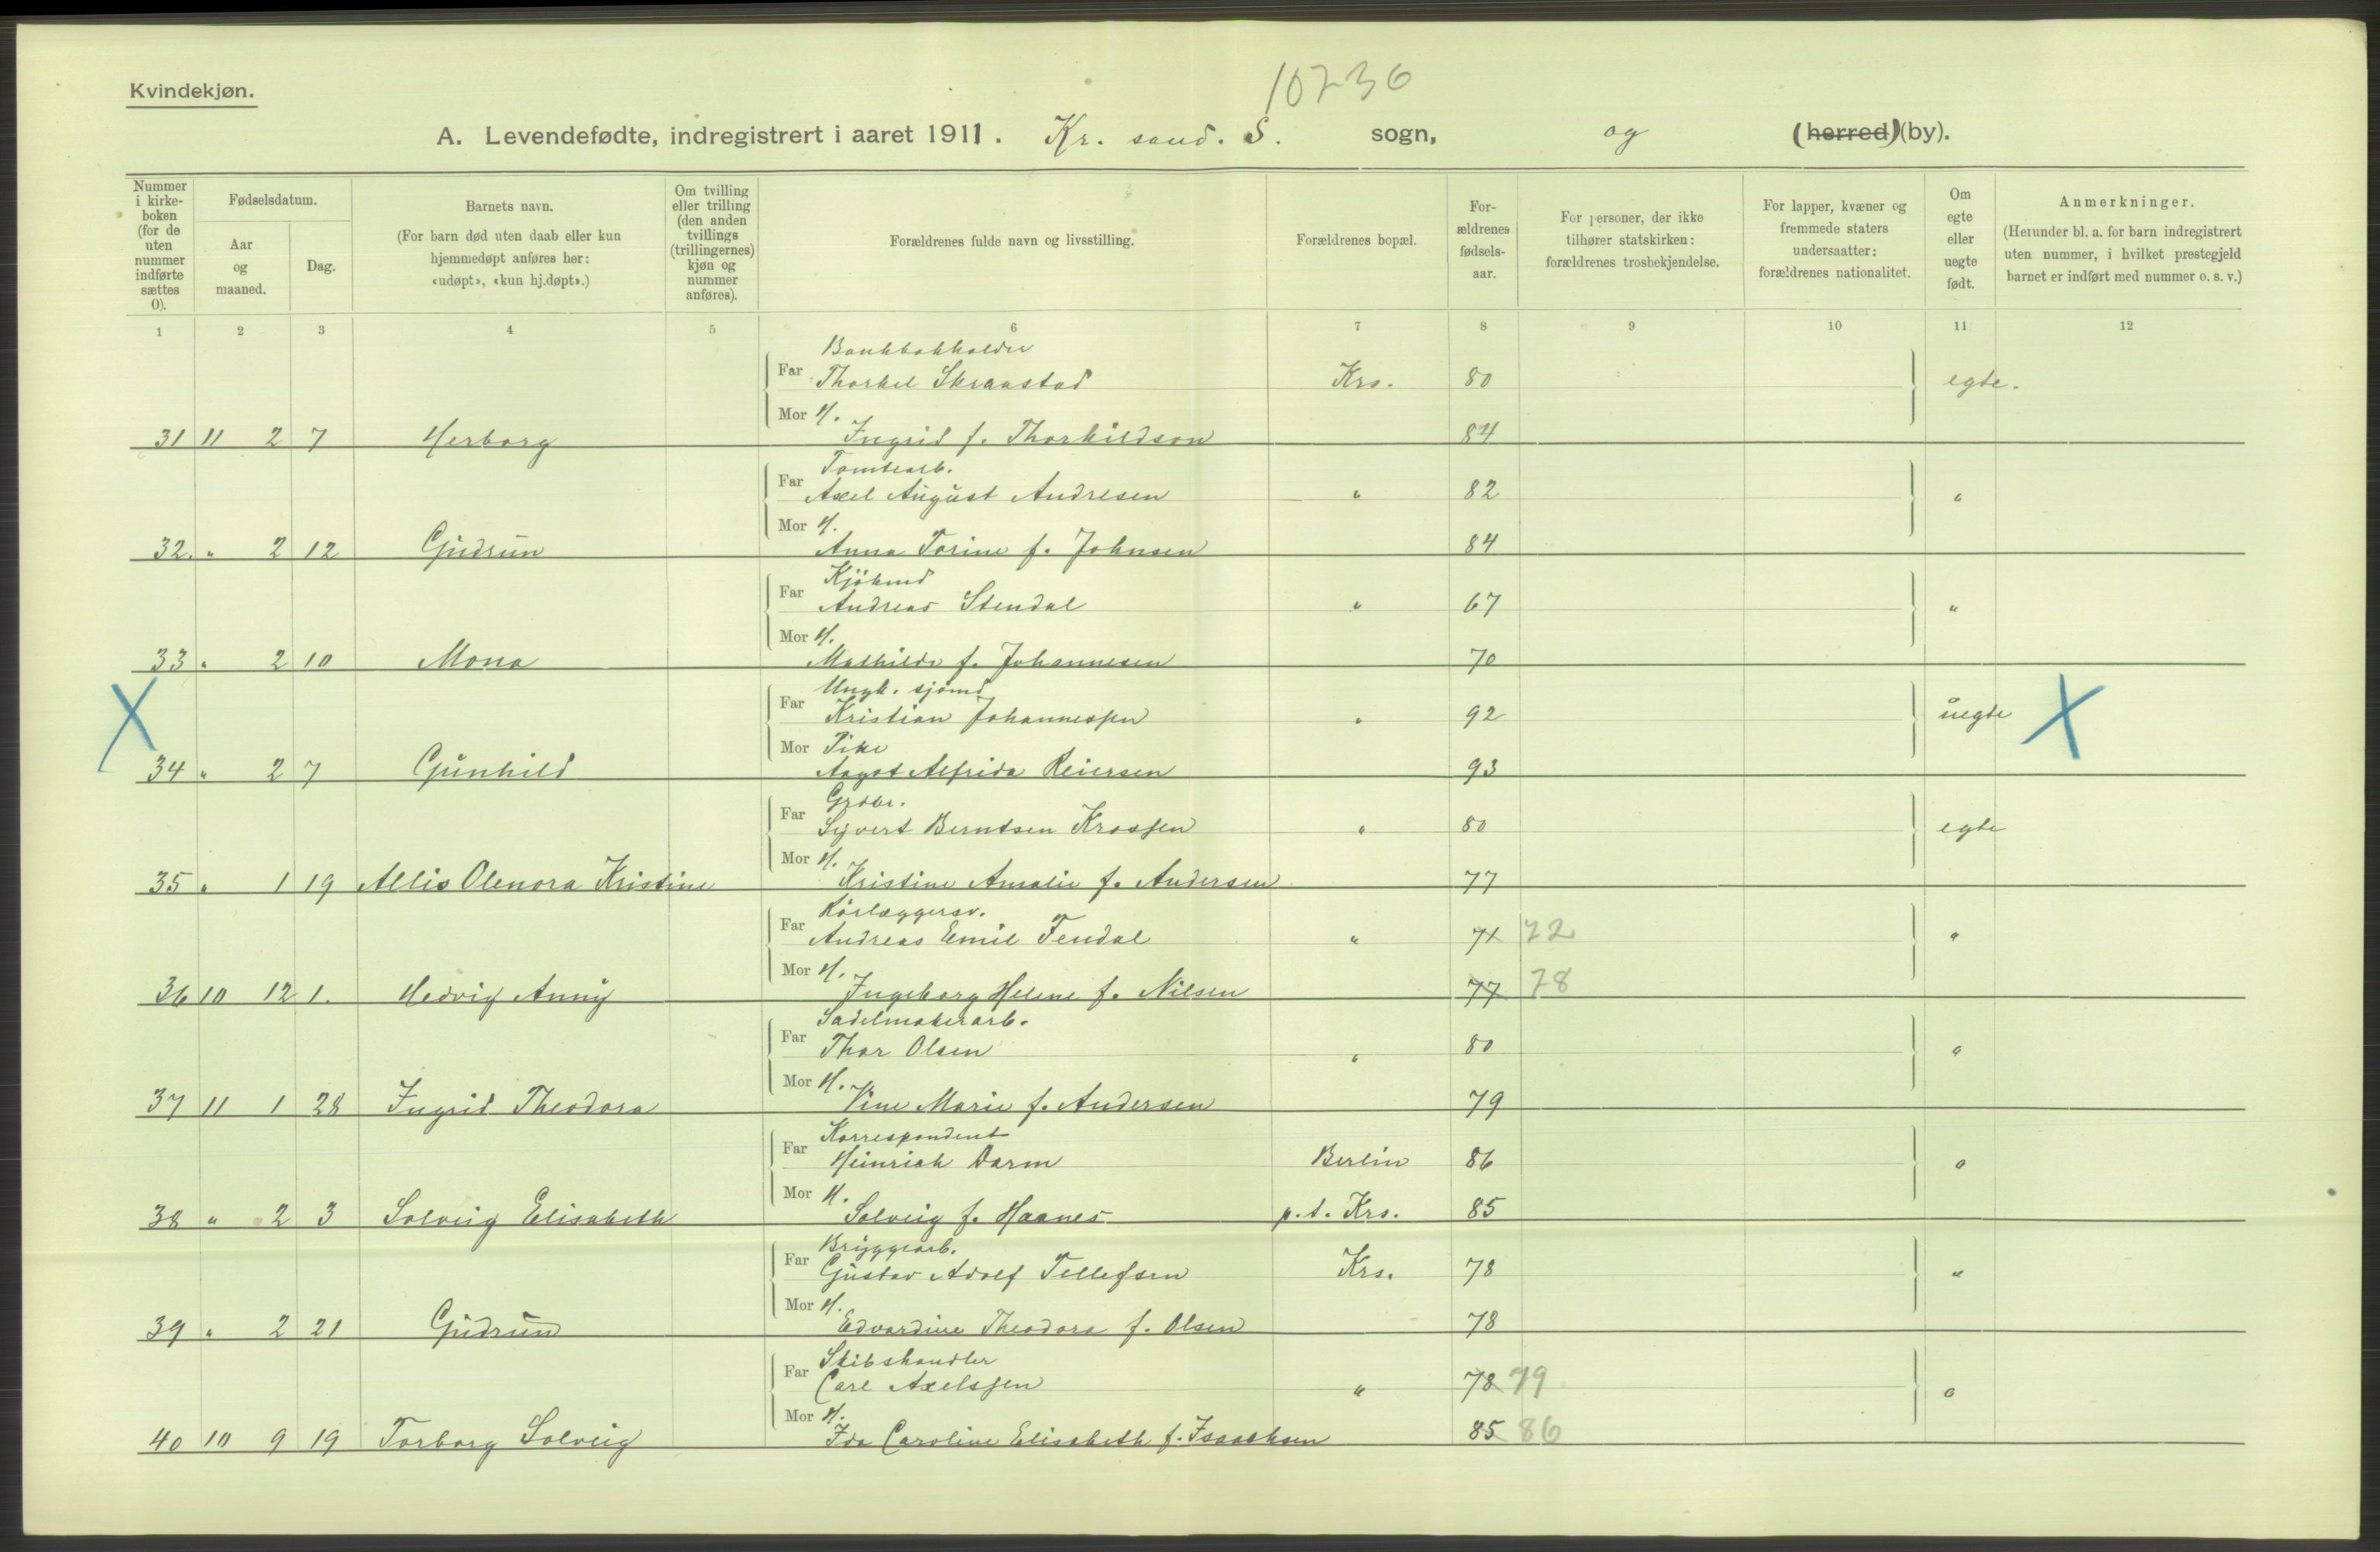 10236
Kvindekjøn.
A. Levendefødte, indregistrert i aaret 1911. Kr. sand. S. sogn, og (herred) (by).
Nummer i kirke-boken (for de uten nummer indførte sættes 0).
Fødselsdatum.
Aar og maaned.
Dag.
Barnets navn.
(For barn død uten daab eller kun hjemmedøpt anføres her: «udøpt», «kun hj.døpt».)
Om tvilling eller trilling (den anden tvillings (trillingernes) kjøn og nummer anføres).
Forældrenes fulde navn og livsstilling.
Forældrenes bopæl.
For-ældrenes fødsels-aar.
For personer, der ikke tilhører statskirken: forældrenes trosbekjendelse.
For lapper, kvæner og fremmede staters undersaatter: forældrenes nationalitet.
Om egte eller uegte født.
Anmerkninger.
(Herunder bl. a. for barn indregistrert uten nummer, i hvilket prestegjeld barnet er indført med nummer o. s. v.)
1 2 3 4 5 6 7 8 9 10 11 12
Bankbokholder
Far Thorkel Skraastad Krs. 80 egte.
Mor H.
31 11 2 7 Herborg Ingrid f. Thorkildson 84
Tomtearb.
Far Axel August Andresen " 82 "
Mor H.
32. " 2 12 Gudrun Anna Torine f. Johnsen 84
Kjöbmd
Far Andreas Stendal " 67 "
Mor H.
33 " 2 10 Mona Mathilde f. Johannesen 70
Ungk. sjömd
Far Kristian Johannessen " 92 uegte X
Mor Pike
X 34 " 2 7 Gunhild Aagot Alfrida Reiersen 93
Grdbr.
Far Syvert Berntsen Krossen " 80 egte
Mor H.
35 " 1 19 Allis Olenora Kristine Kristine Amalie f. Andersen 77
Rörlæggersv.
Far Andreas Emil Fendal " 71 72 "
Mor H.
36 10 12 1. Hedvig Anny Ingeborg Helene f. Nilsen 77 78
Sadelmakerarb.
Far Thor Olsen " 80 "
Mor H.
37 11 1 28 Ingrid Theodora Vine Marie f. Andersen 79
Korrespondent
Far Heinrich Darm Berlin 86 "
Mor H.
38 " 2 3 Solveig Elisabeth Solveig f. Haanes p.t. Krs. 85
Bryggearb.
Far Gustav Adolf Tellefsen Krs. 78 "
Mor H.
39 " 2 21 Gudrun Edvardine Theodora f. Olsen 78
Skibshandler
Far Carl Axelssen " 78 79 "
Mor H.
40 10 9 19 Torborg Solveig Ida Caroline Elisabeth f. Isaachsen 85 86